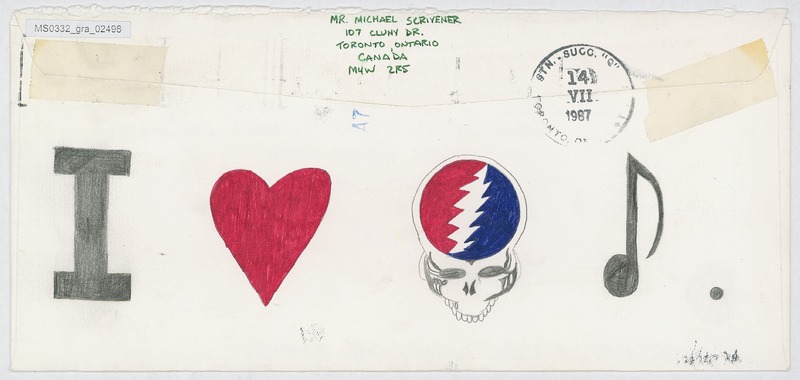 MS0332_gra_02498
MR. MICHAEL SCRIVENER
107 CLUNY DR.
TORONTO, ONTARIO
CANADA
M4W 2R5
STN. SUCC. "Q"
14
VII
1987
TORONTO,
A7
I
.